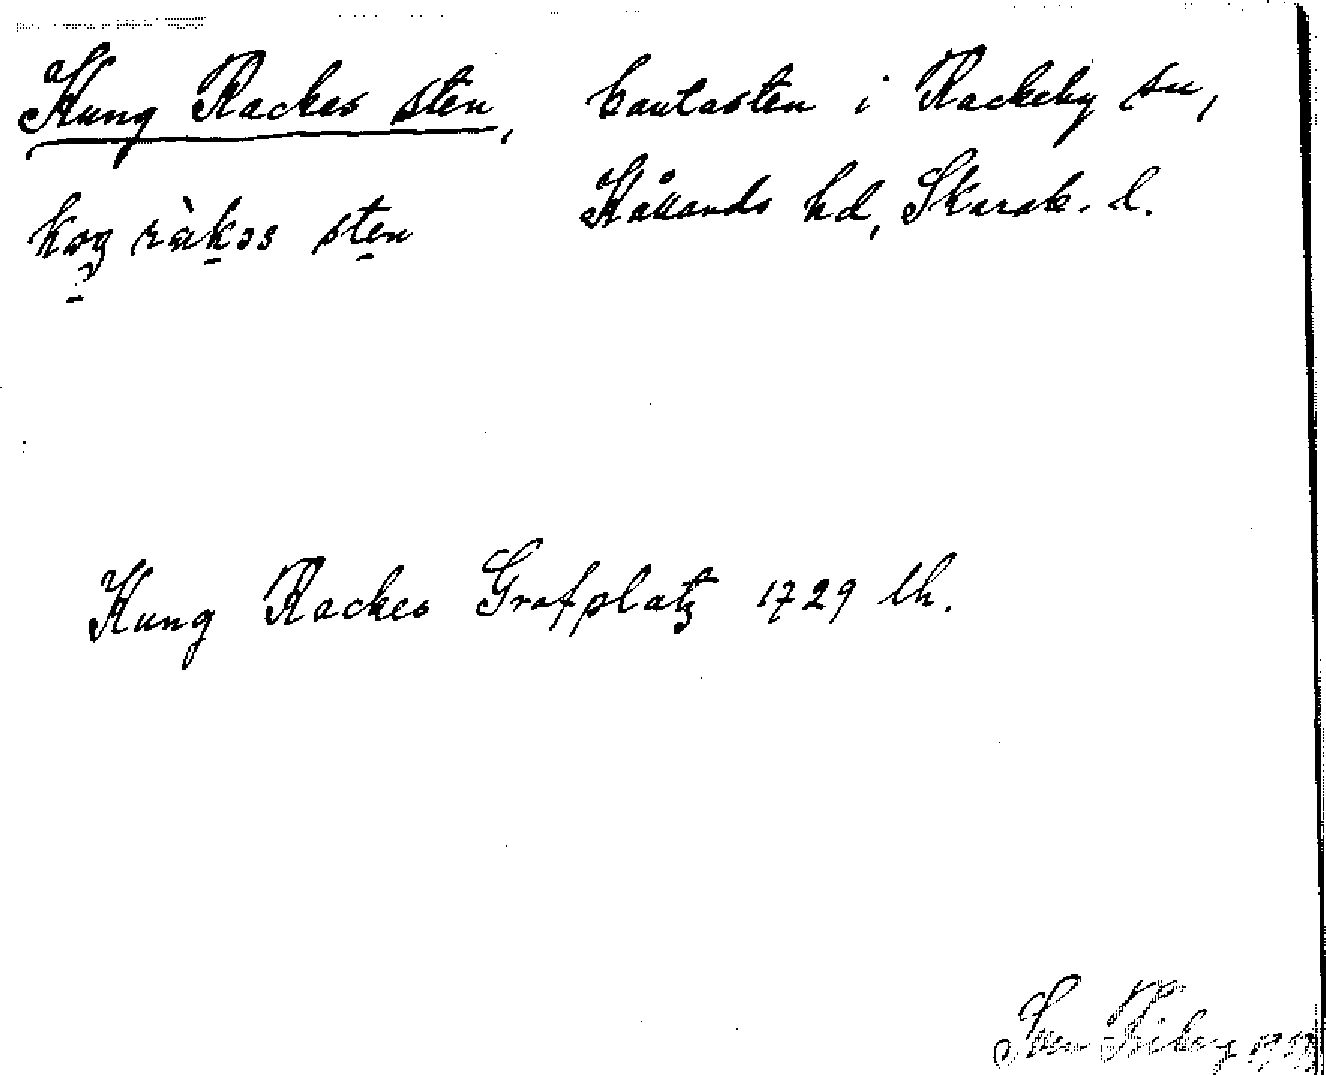 Kung Rackes sten, bautasten i Rackeby sn,
Kållands hd, Skarab. l.
kɔŋ ràkəs sten
Kung Rackes Grafplatz 1729 lh.
Sven